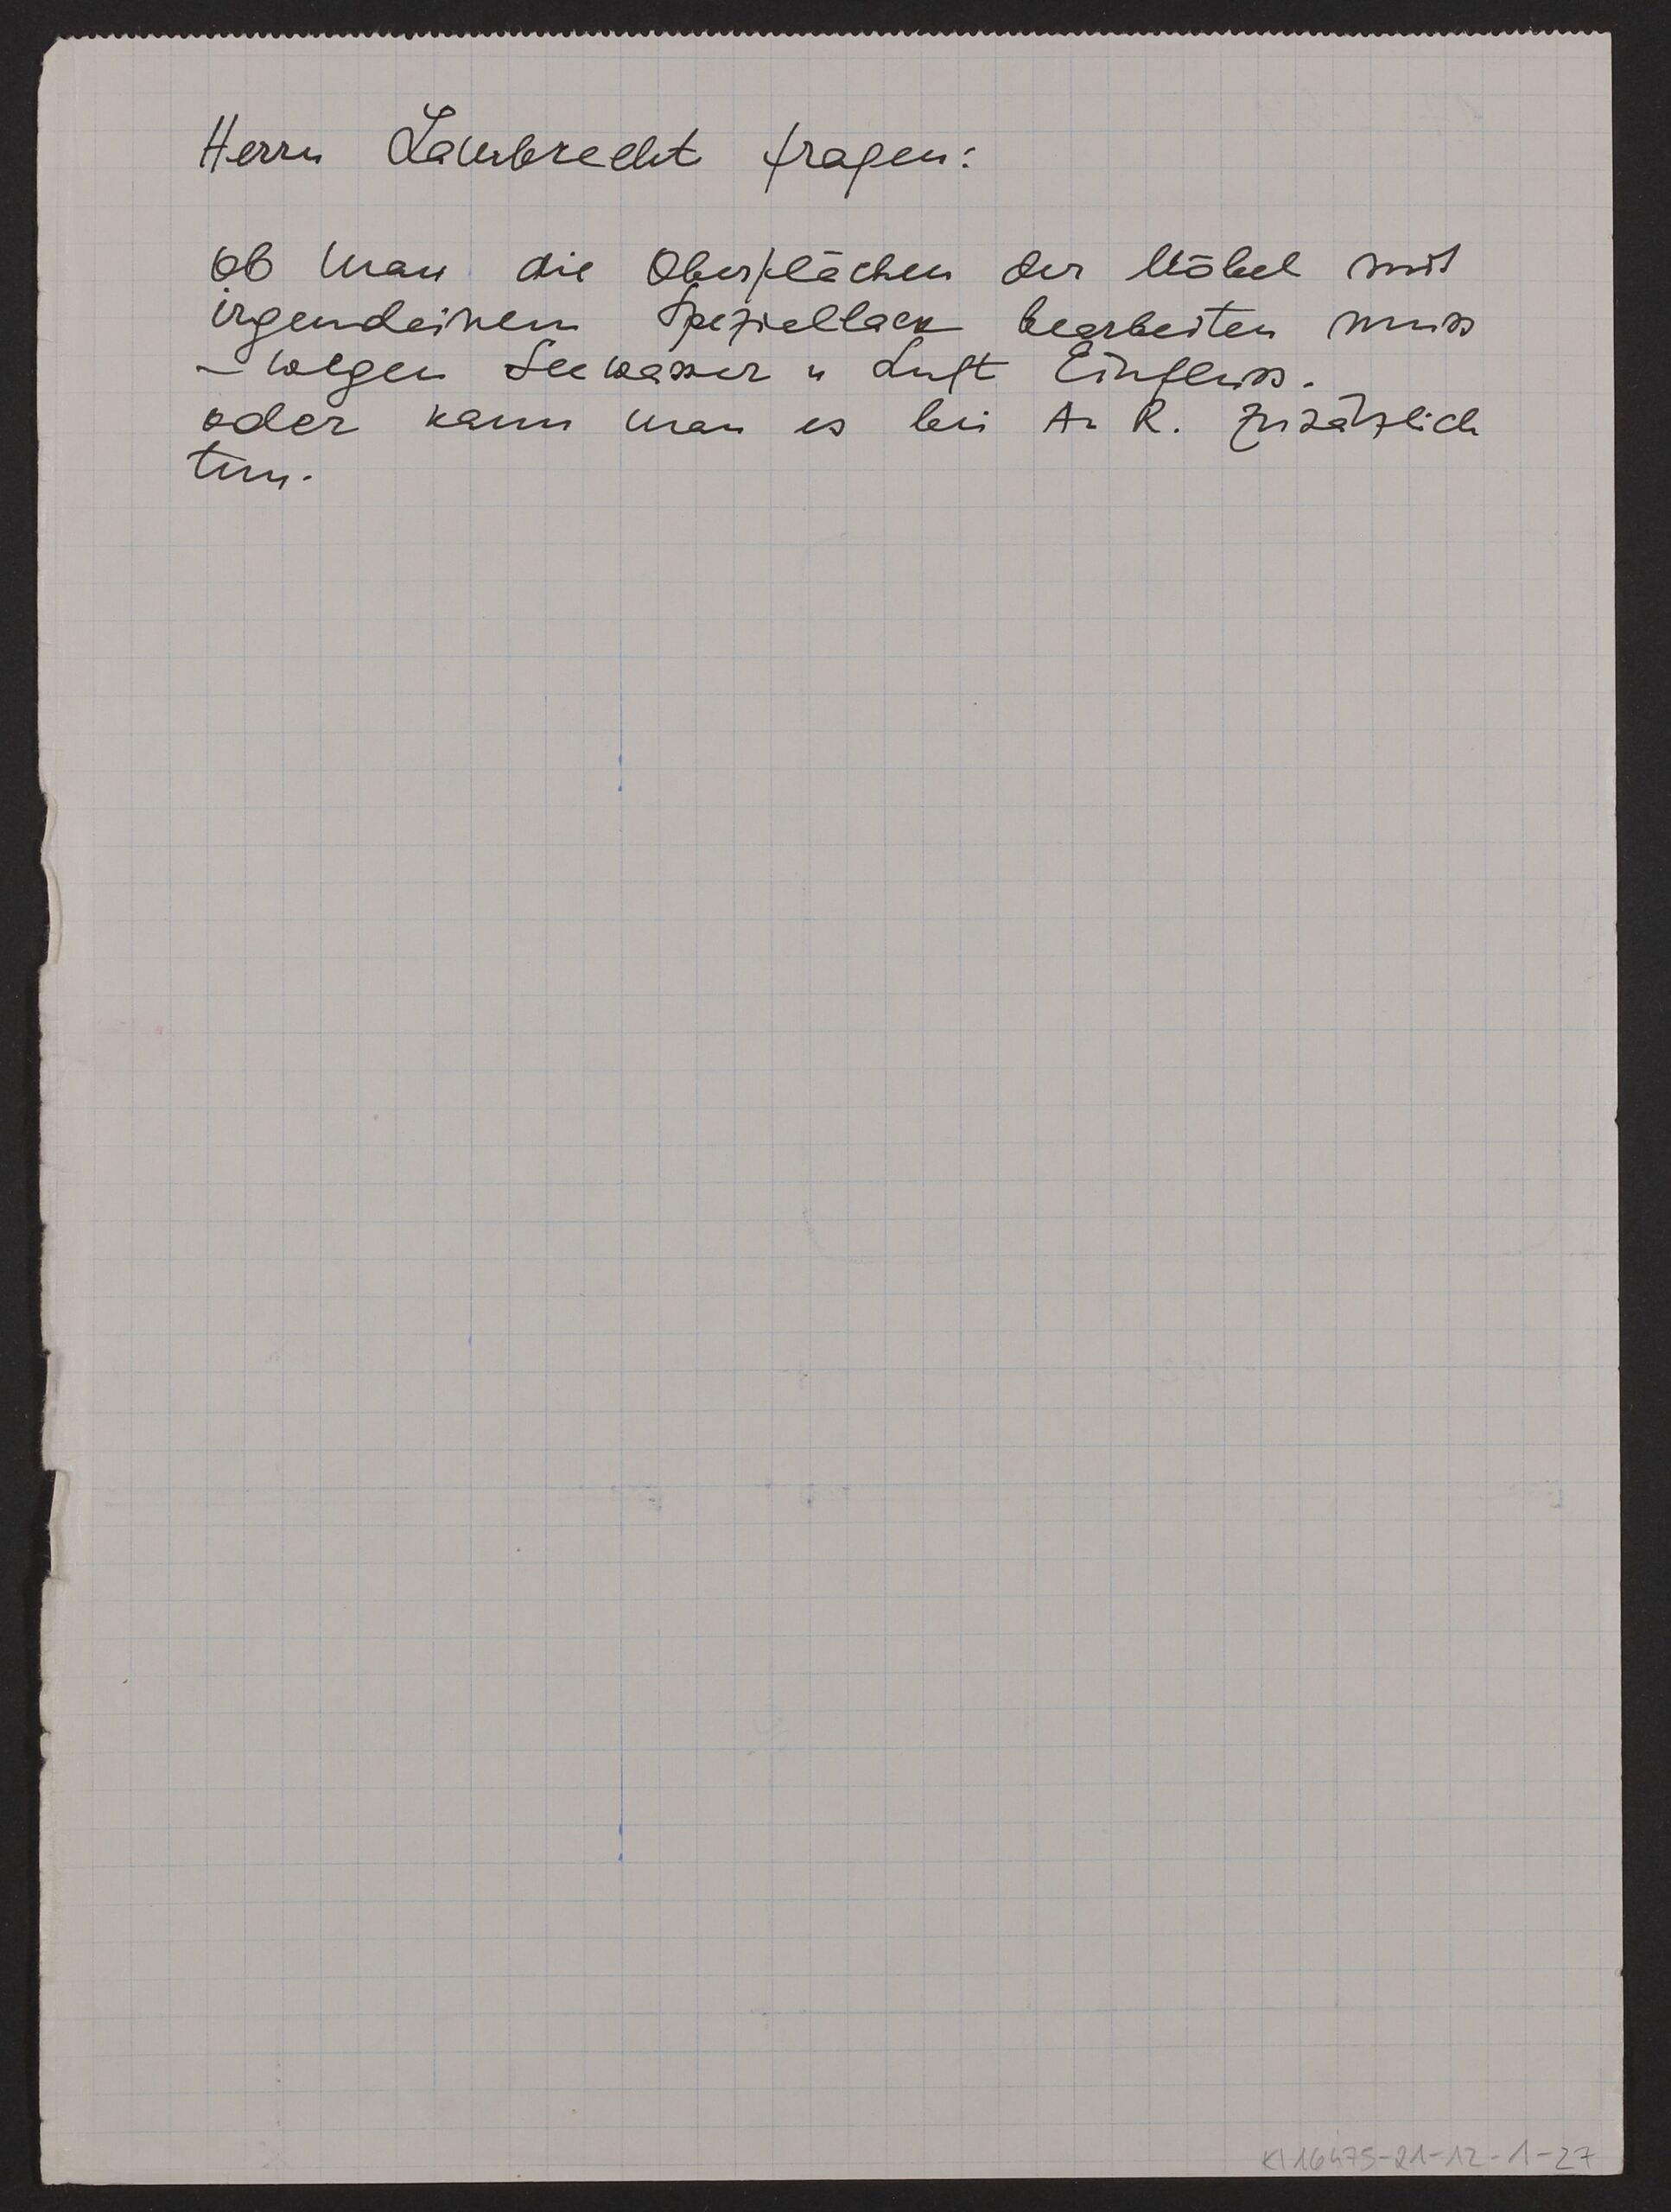 Herrn Lambrecht fragen:
ob man die Oberflächen der Möbel mit
irgendeinem Speziallack bearbeiten muss
– wegen Seewasser u Luft Einfluss.
oder kann man es bei A. R. zusätzlich
tun.
KI 16475-21-12-1-27